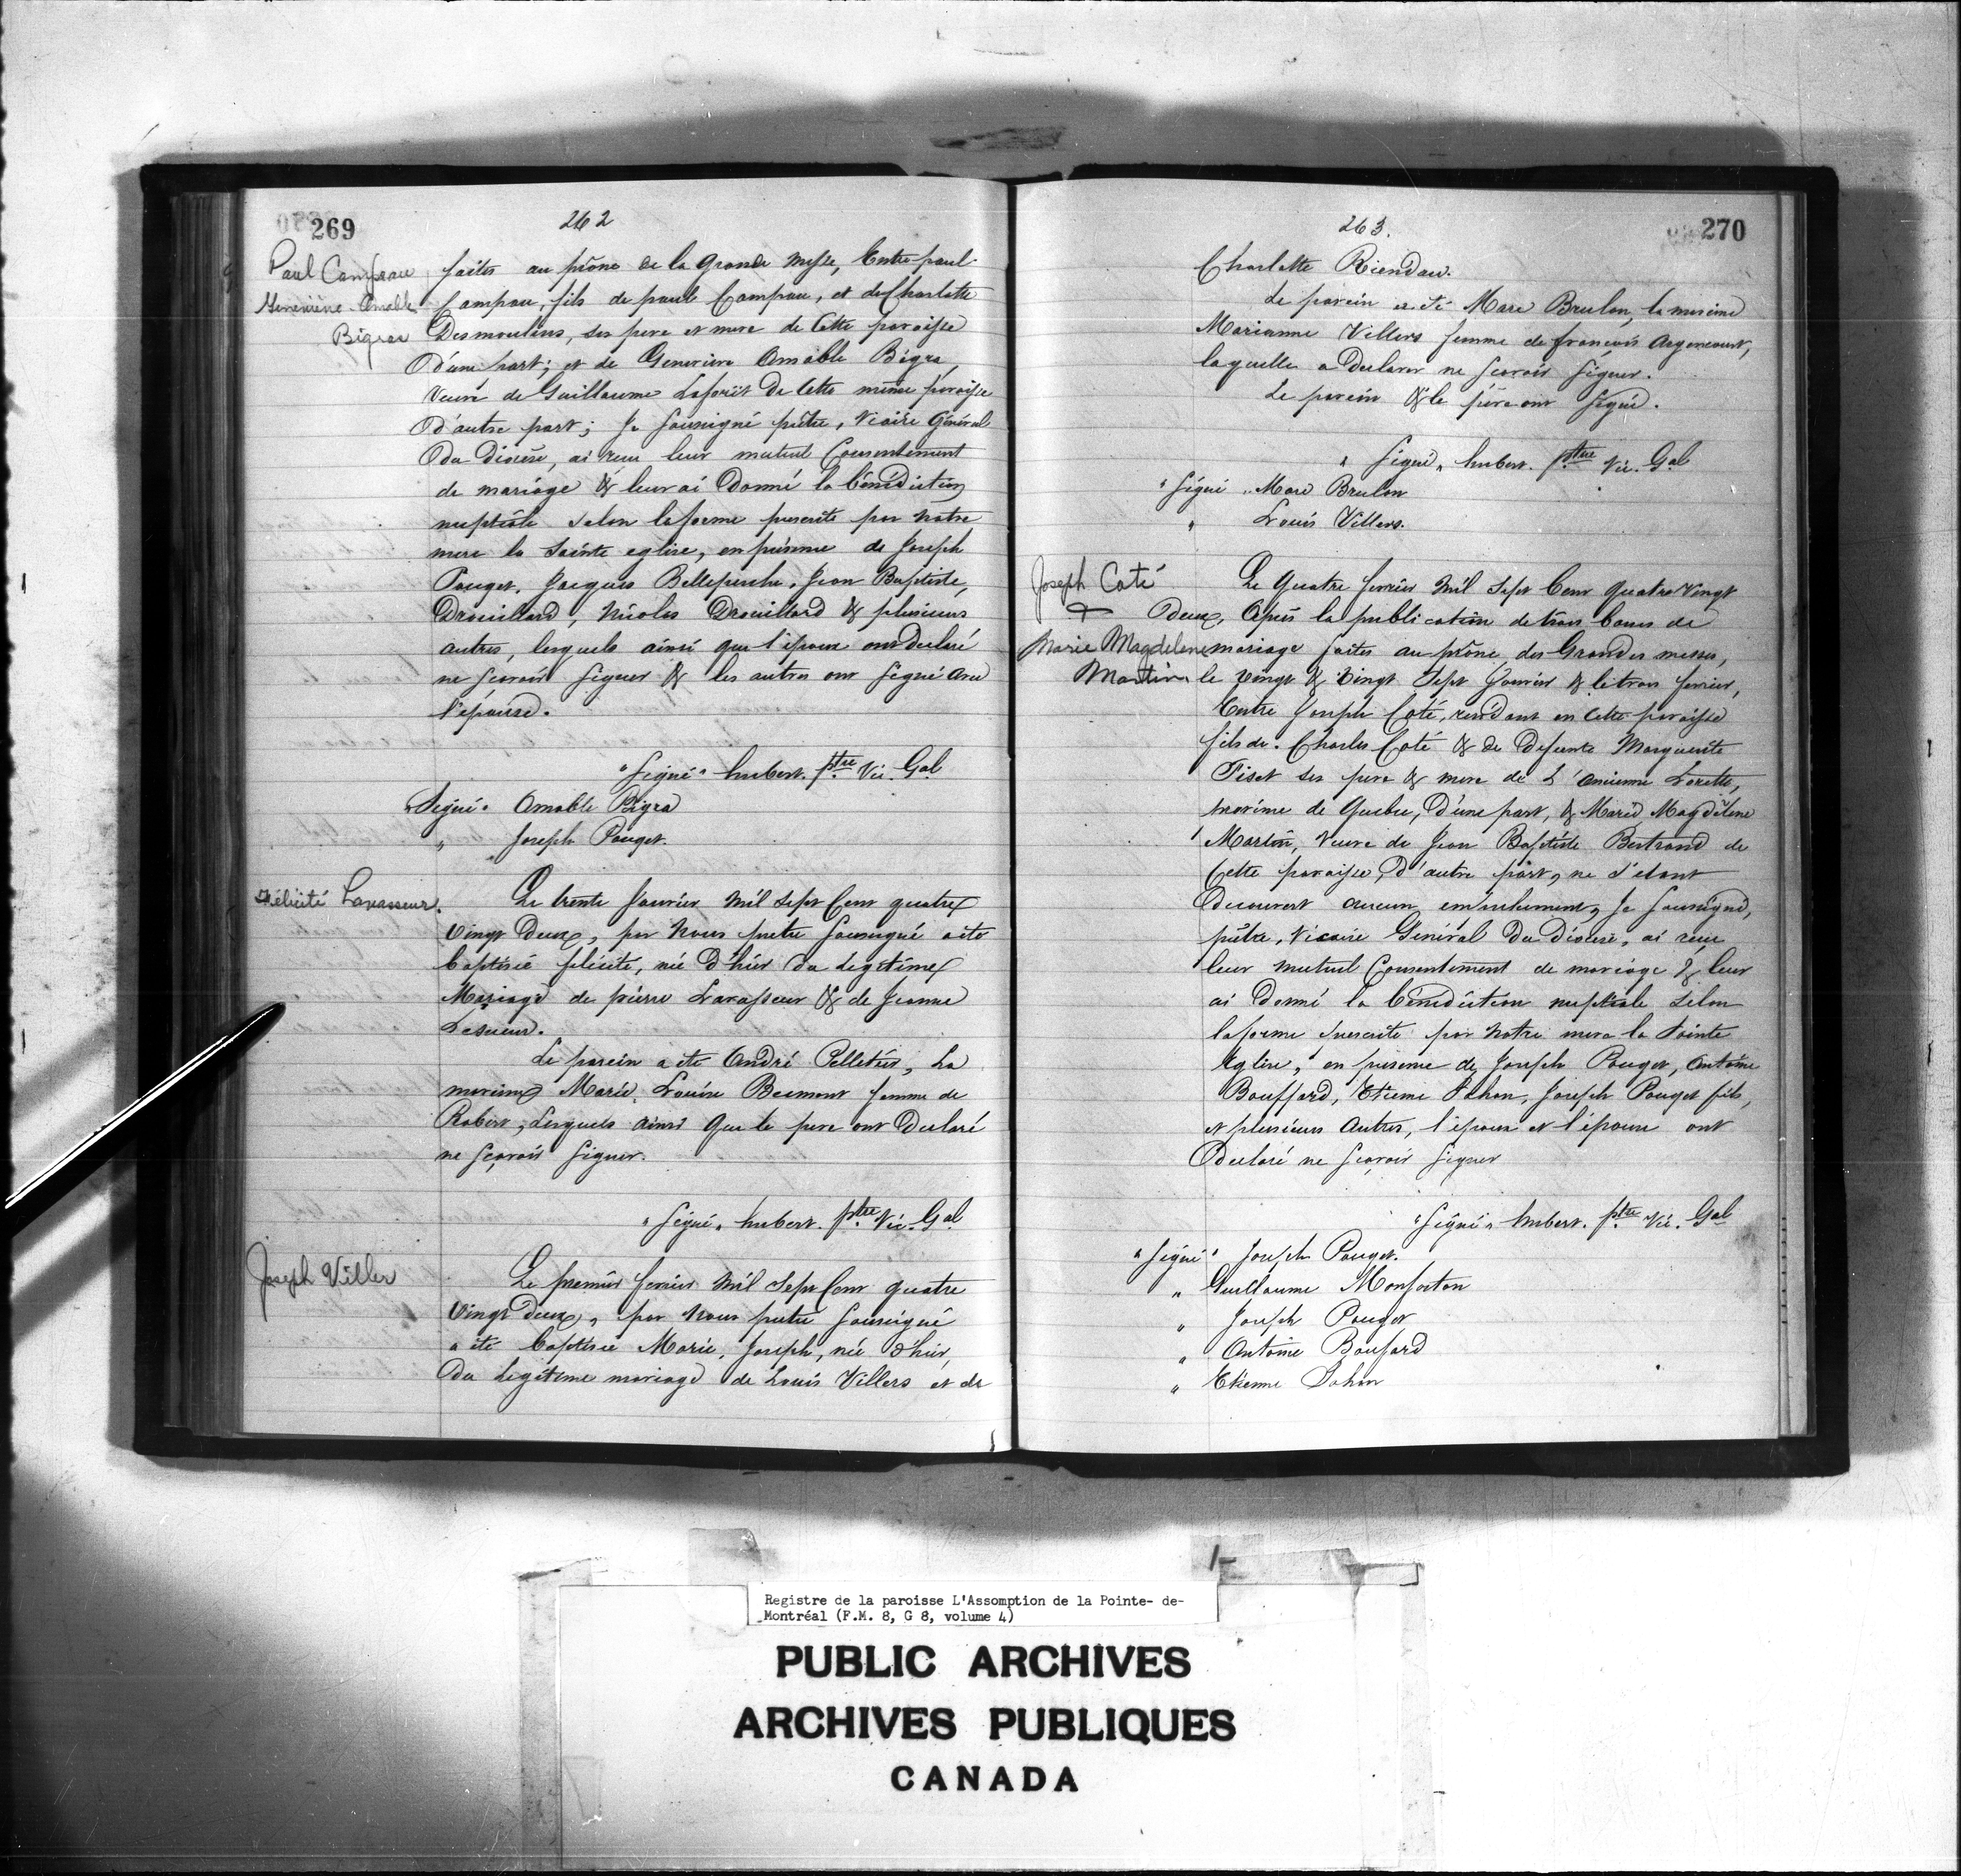 269
262
Paul Campeau
Genevieve Amable
Bigras
faites au prône de la grande messe, Entre paul
Campau, fils de paul Campau, et de Charlotte
Desmoulins, ses pere et mere de Cette paroisse
D'une part; et de Genevieve Amable Bigra,
Veuve de Guillaume Laforêt De Cette même paroisse
D'autre part; Je soussigné prêtre, Vicaire Général
Du Diocèse, ai recu leur mutuel Consentement
de mariage & leur ai Donné la bénédiction
nuptiale selon la forme prescrite par notre
mere la Sainte eglise, en présence de Joseph
Pouget, Jacques Belleperche, Jean Baptiste,
Drouillard, Nicolas Drouillard & plusieurs
autres, lesquels ainsi que l'époux ont declaré
ne sçavoir signer & les autres ont signé avec
l'épouse.
"Signé" hubert. ptre Vic. Gal
"Signé" Amable Bigra
" Joseph Pouget.
Félicité Lavasseur.
Le trente Janvier mil sept Cent quatre
Vingt Deux, par Nous pretre soussigné a été
baptisée félicité, née D'hier du Legitime
Mariage de pierre Lavasseur & de Jeanne
Lesueur.
Le parein a été André Pelletier, La
mareine Marie, Louise Beemont femme de
Robert, Lesquels ainsi que le pere ont Declaré
ne sçavoir signer.
"Signé" hubert. ptre Vic. Gal
Joseph Viller
Le premier fevrier mil sept Cent quatre
Vingt Deux, par Nous pretre soussigné
a été baptisée Marie, Joseph, née d'hier,
Du Legitime mariage de Louis Villers et de
263.
270
Charlotte Riendau.
Le parein a été Marc Brulon, la mareine
Marianne Villers femme de françois Argencourt,
laquelle a declarer ne scavoir signer.
Le parein & le père ont signé.
"Signé" hubert. ptre Vic. Gal
"Signé" Marc Brulon
" Louis Villers.
Joseph Coté
+
Marie Magdelene
Martin
Le quatre fevrier Mil Sept Cent quatre Vingt
Deux, Après la publication de trois bancs de
mariage faites au prône des Grandes messes,
le vingt & vingt Sept Janvier & le trois fevrier,
Entre Joseph Coté, residant en Cette paroisse
fils de Charles Coté & de Defunte Marguerite
Piset ses pere & mere de L'ancienne Lorette,
proxime de Quebec, D'une part, & Marie Magdelene
Martin, Veuve de Jean Baptiste Bertrand de
Cette paroisse, D'autre part, ne s'etant
Decouvert aucun empechement, Je soussigné,
prêtre, Vicaire Général Du Diocese, ai reçu
leur mutuel Consentement de mariage & leur
ai Donné la bénédiction nuptiale selon
la forme prescrite par notre mere la Sainte
Eglise, en presence de Joseph Pouget, Antoine
Bouffard, Etienne Sahon, Joseph Pouget fils,
et plusieurs autres, l'époux et l'épouse ont
Declaré ne scavoir signer
"Signé" hubert. ptre Vic. Gal
"Signé" Joseph Pouget.
" Guillaume Monforton
" Joseph Pouget
" Antoine Boufard
" Etienne Sahon
Registre de la paroisse L'Assomption de la Pointe- de-
Montréal (F.M. 8, G 8, volume 4)
PUBLIC ARCHIVES
ARCHIVES PUBLIQUES
CANADA